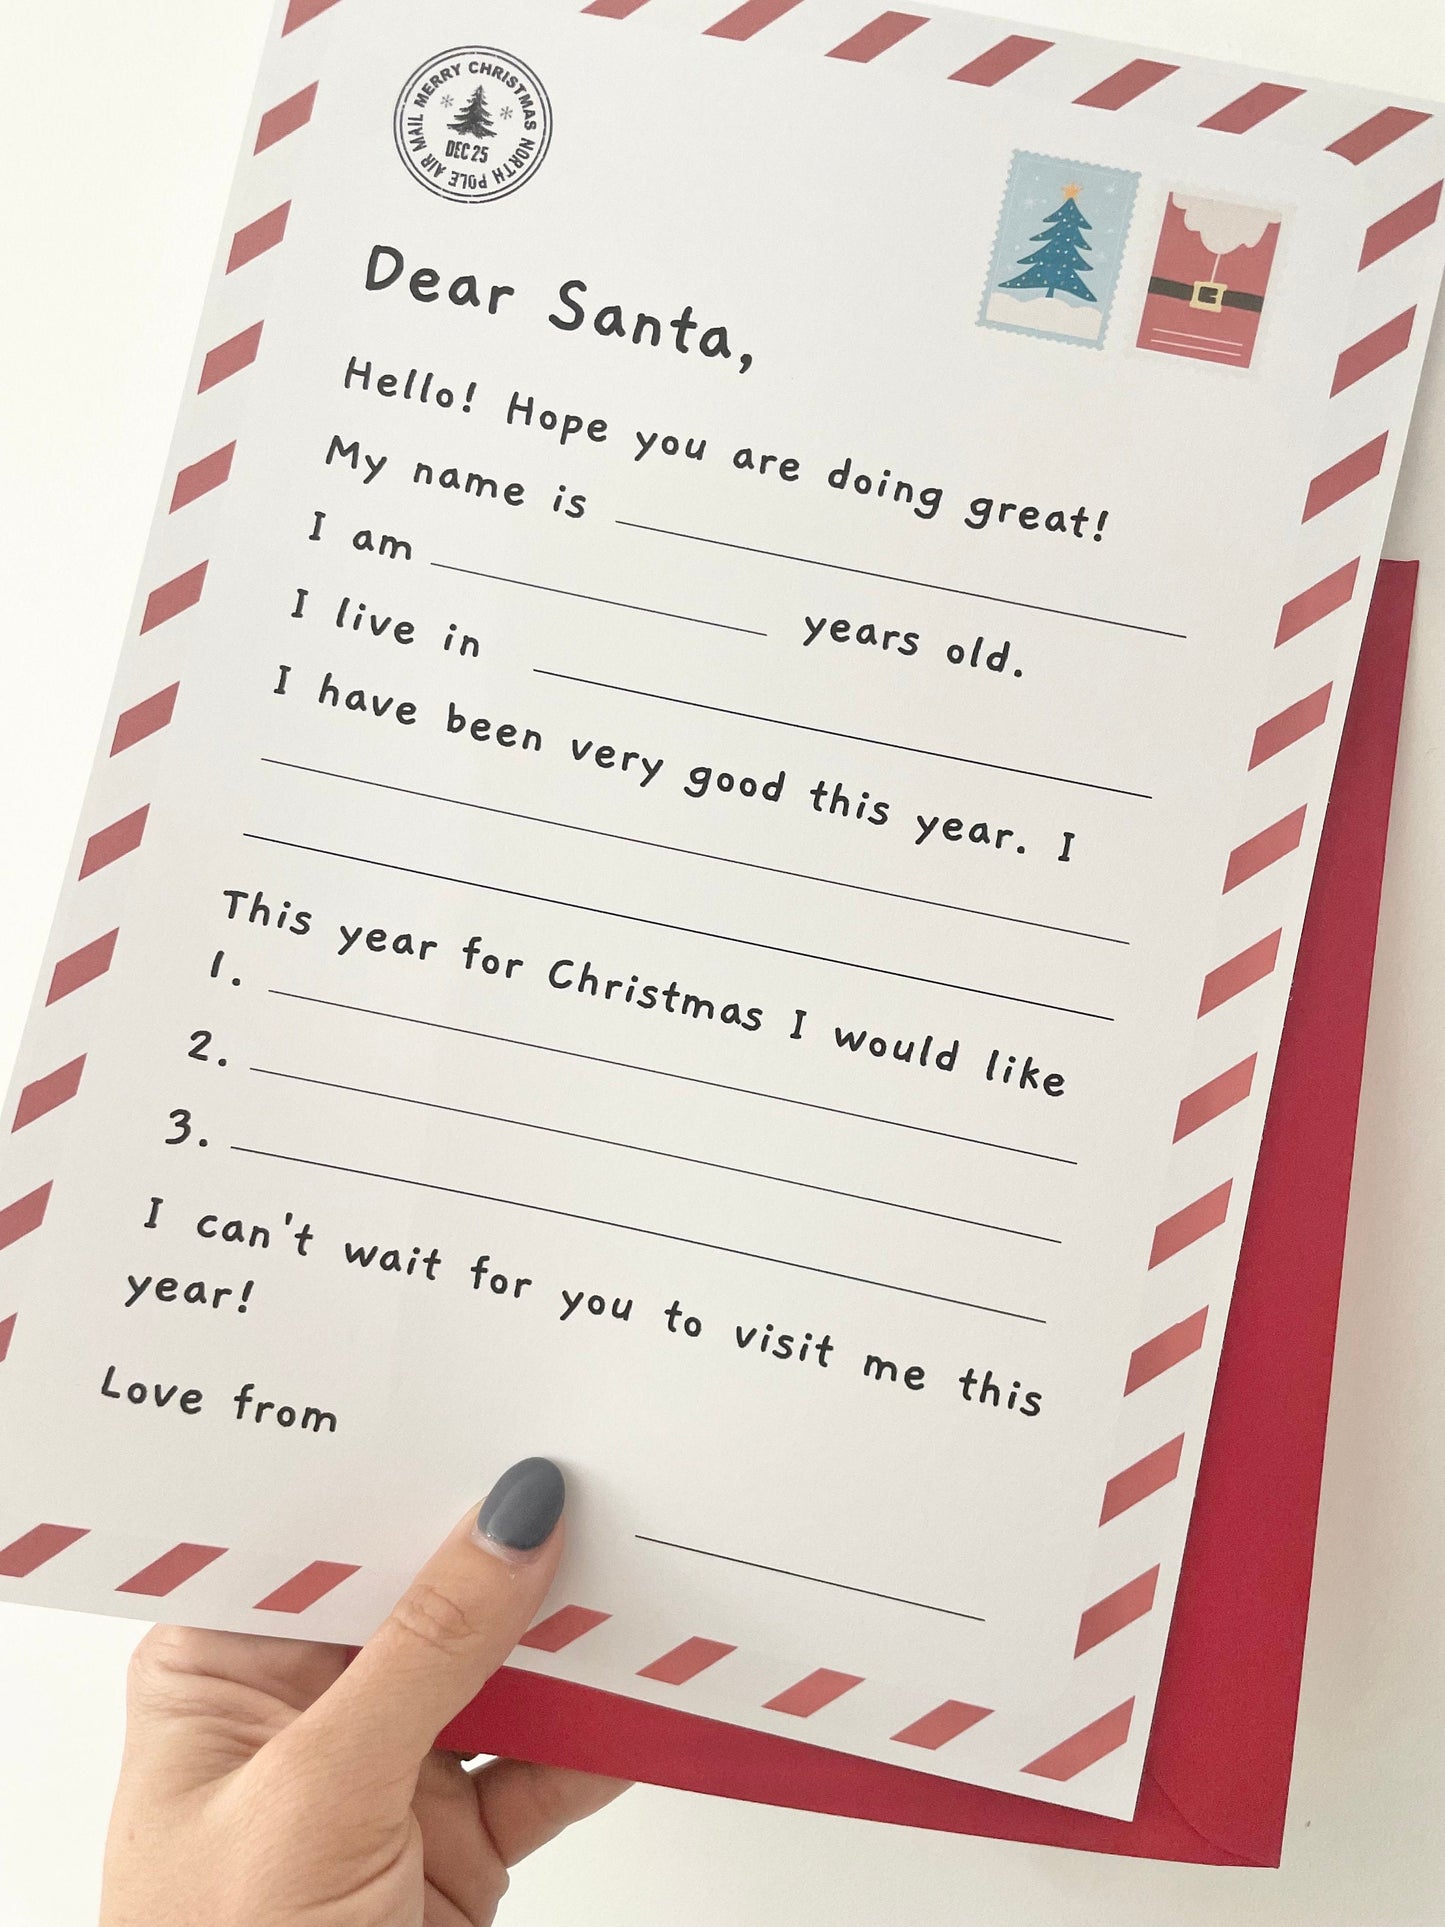 MERRY CHRISTMAS NORTH POLE AIR MAIL
DEC 25
Dear Santa,
Hello! Hope you are doing great!
My name is
I am years old.
I live in
I have been very good this year. I
This year for Christmas I would like
1.
2.
3.
I can't wait for you to visit me this
year!
Love from